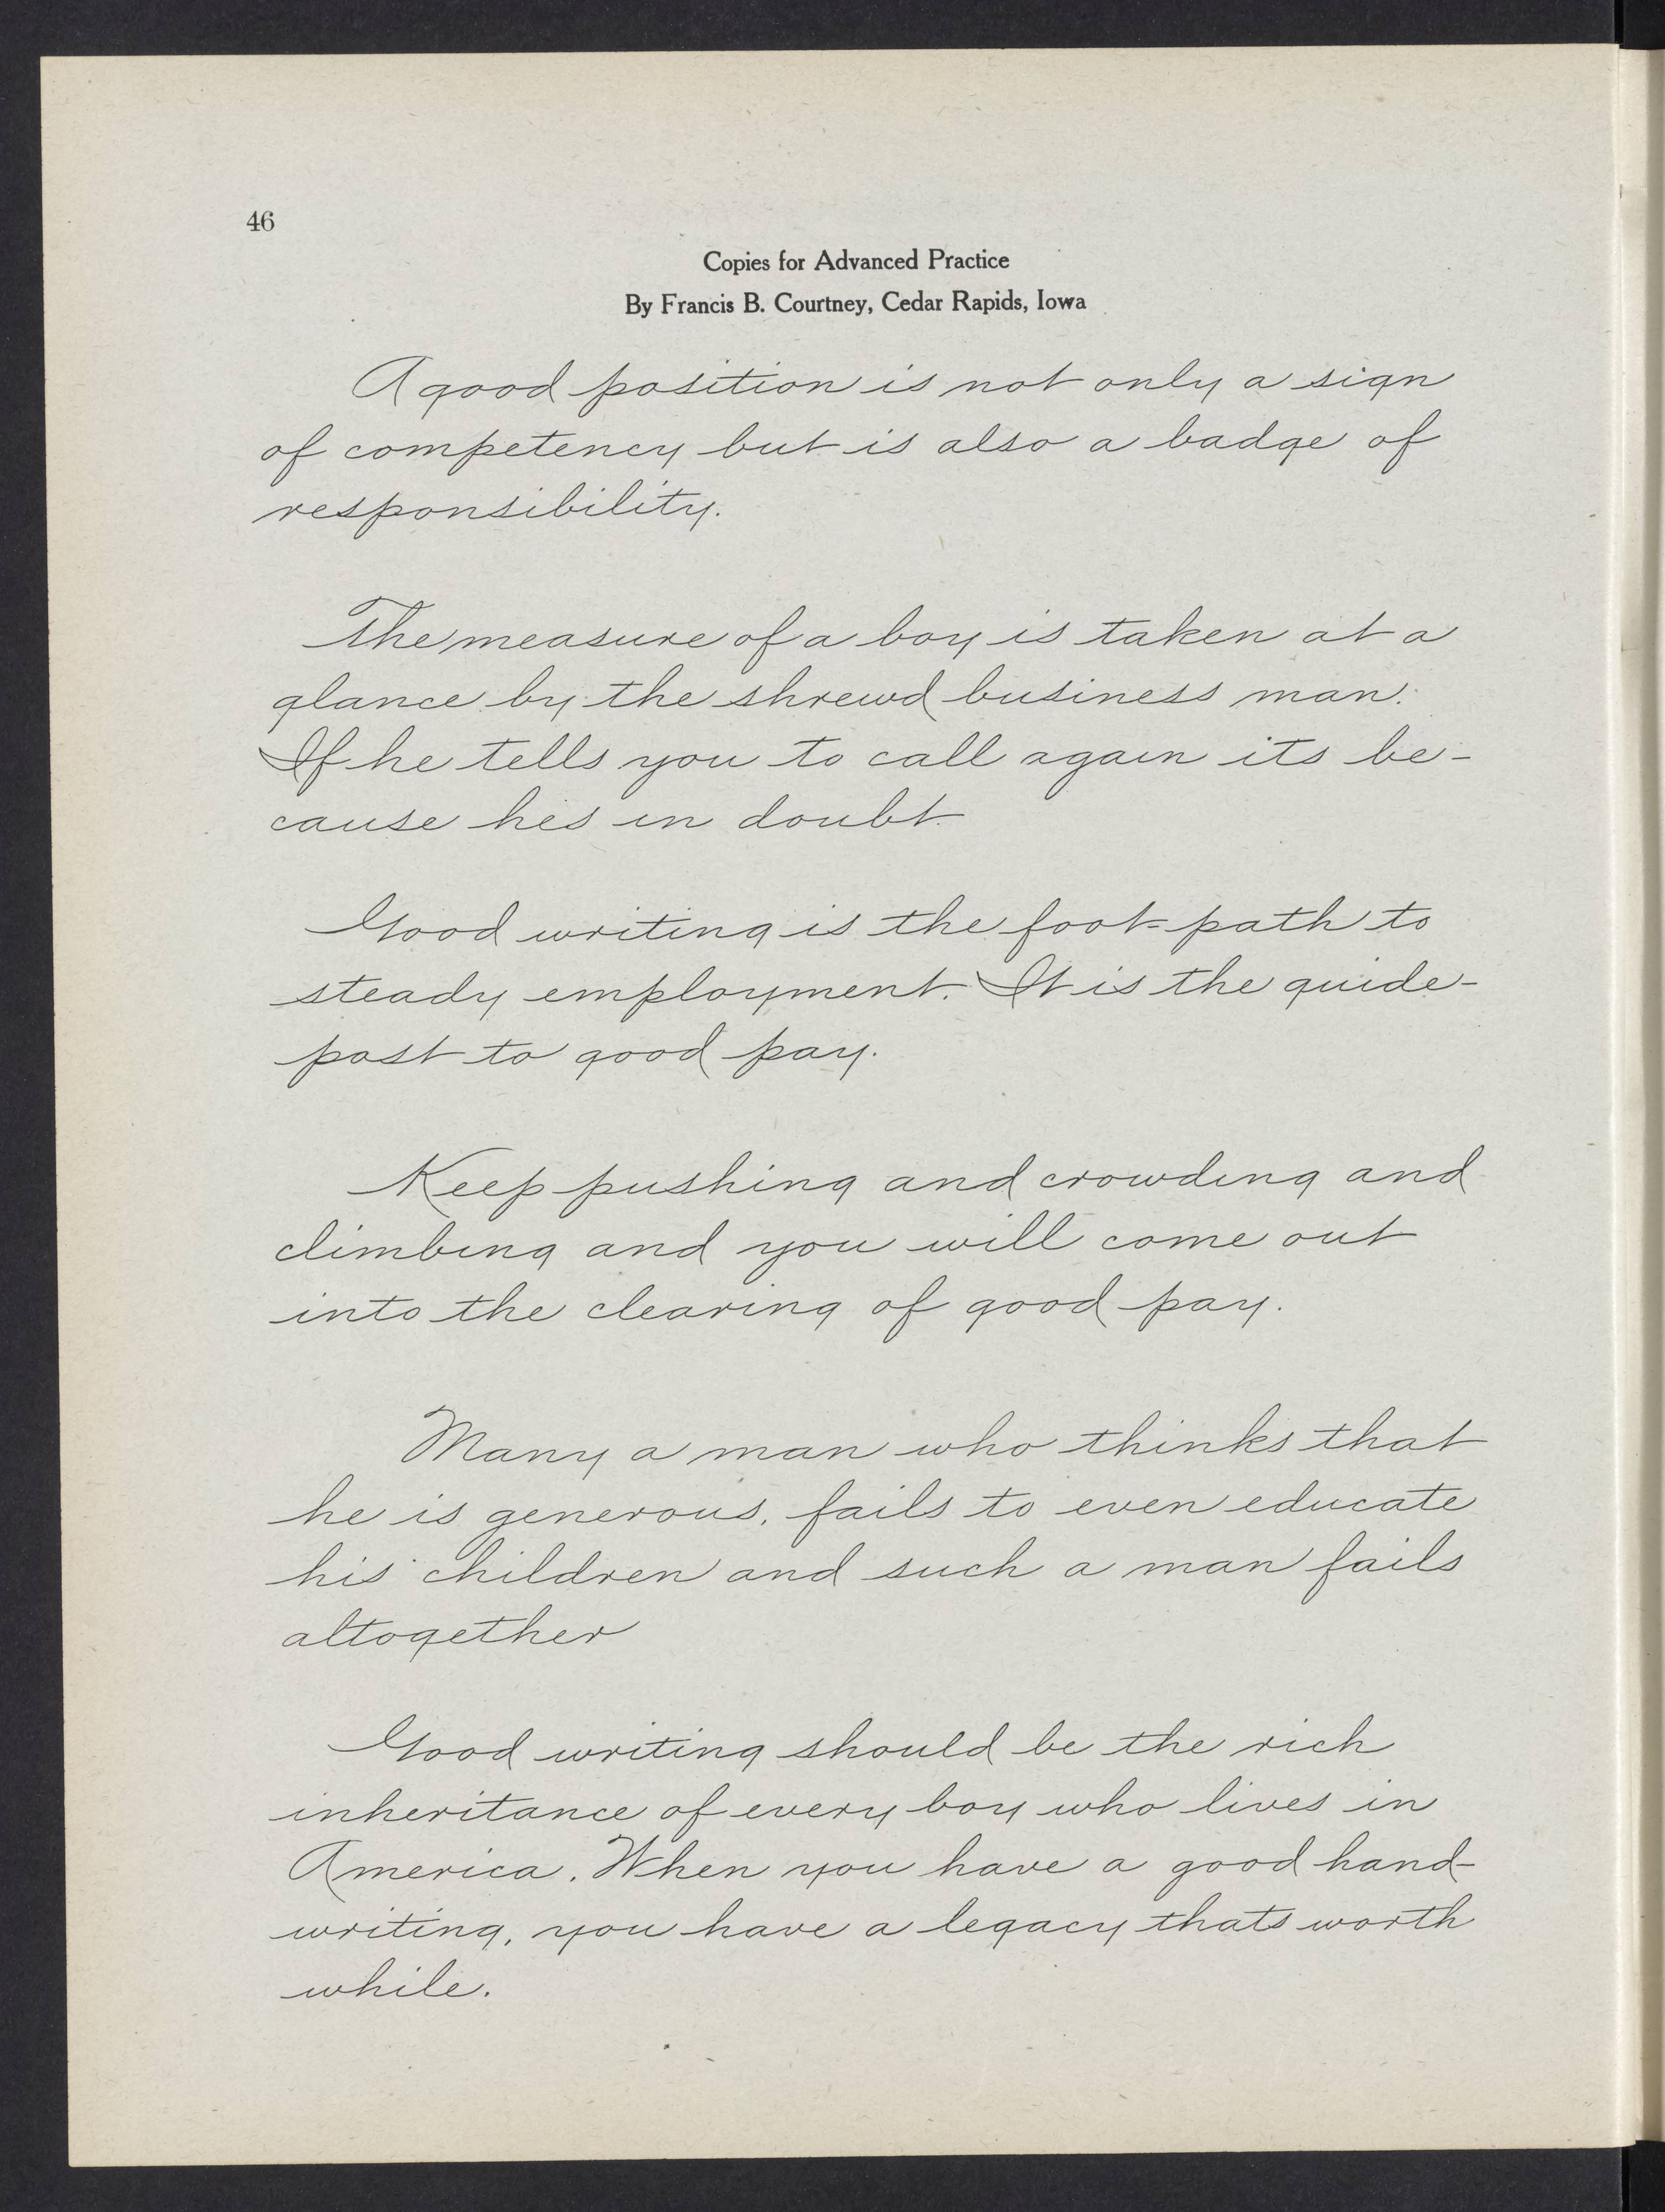 46
Copies for Advanced Practice
By Francis B. Courtney, Cedar Rapids, Iowa
A good position is not only a sign
of competency but is also a badge of
responsibility.
The measure of a boy is taken at a
glance by the shrewd business man.
If he tells you to call again its be-
cause hes in doubt.
Good writing is the foot-path to
steady employment. It is the guide-
post to good pay.
Keep pushing and crowding and
climbing and you will come out
into the clearing of good pay.
Many a man who thinks that
he is generous, fails to even educate
his children and such a man fails
altogether
Good writing should be the rich
inheritance of every boy who lives in
America. When you have a good hand-
writing, you have a legacy thats worth
while.